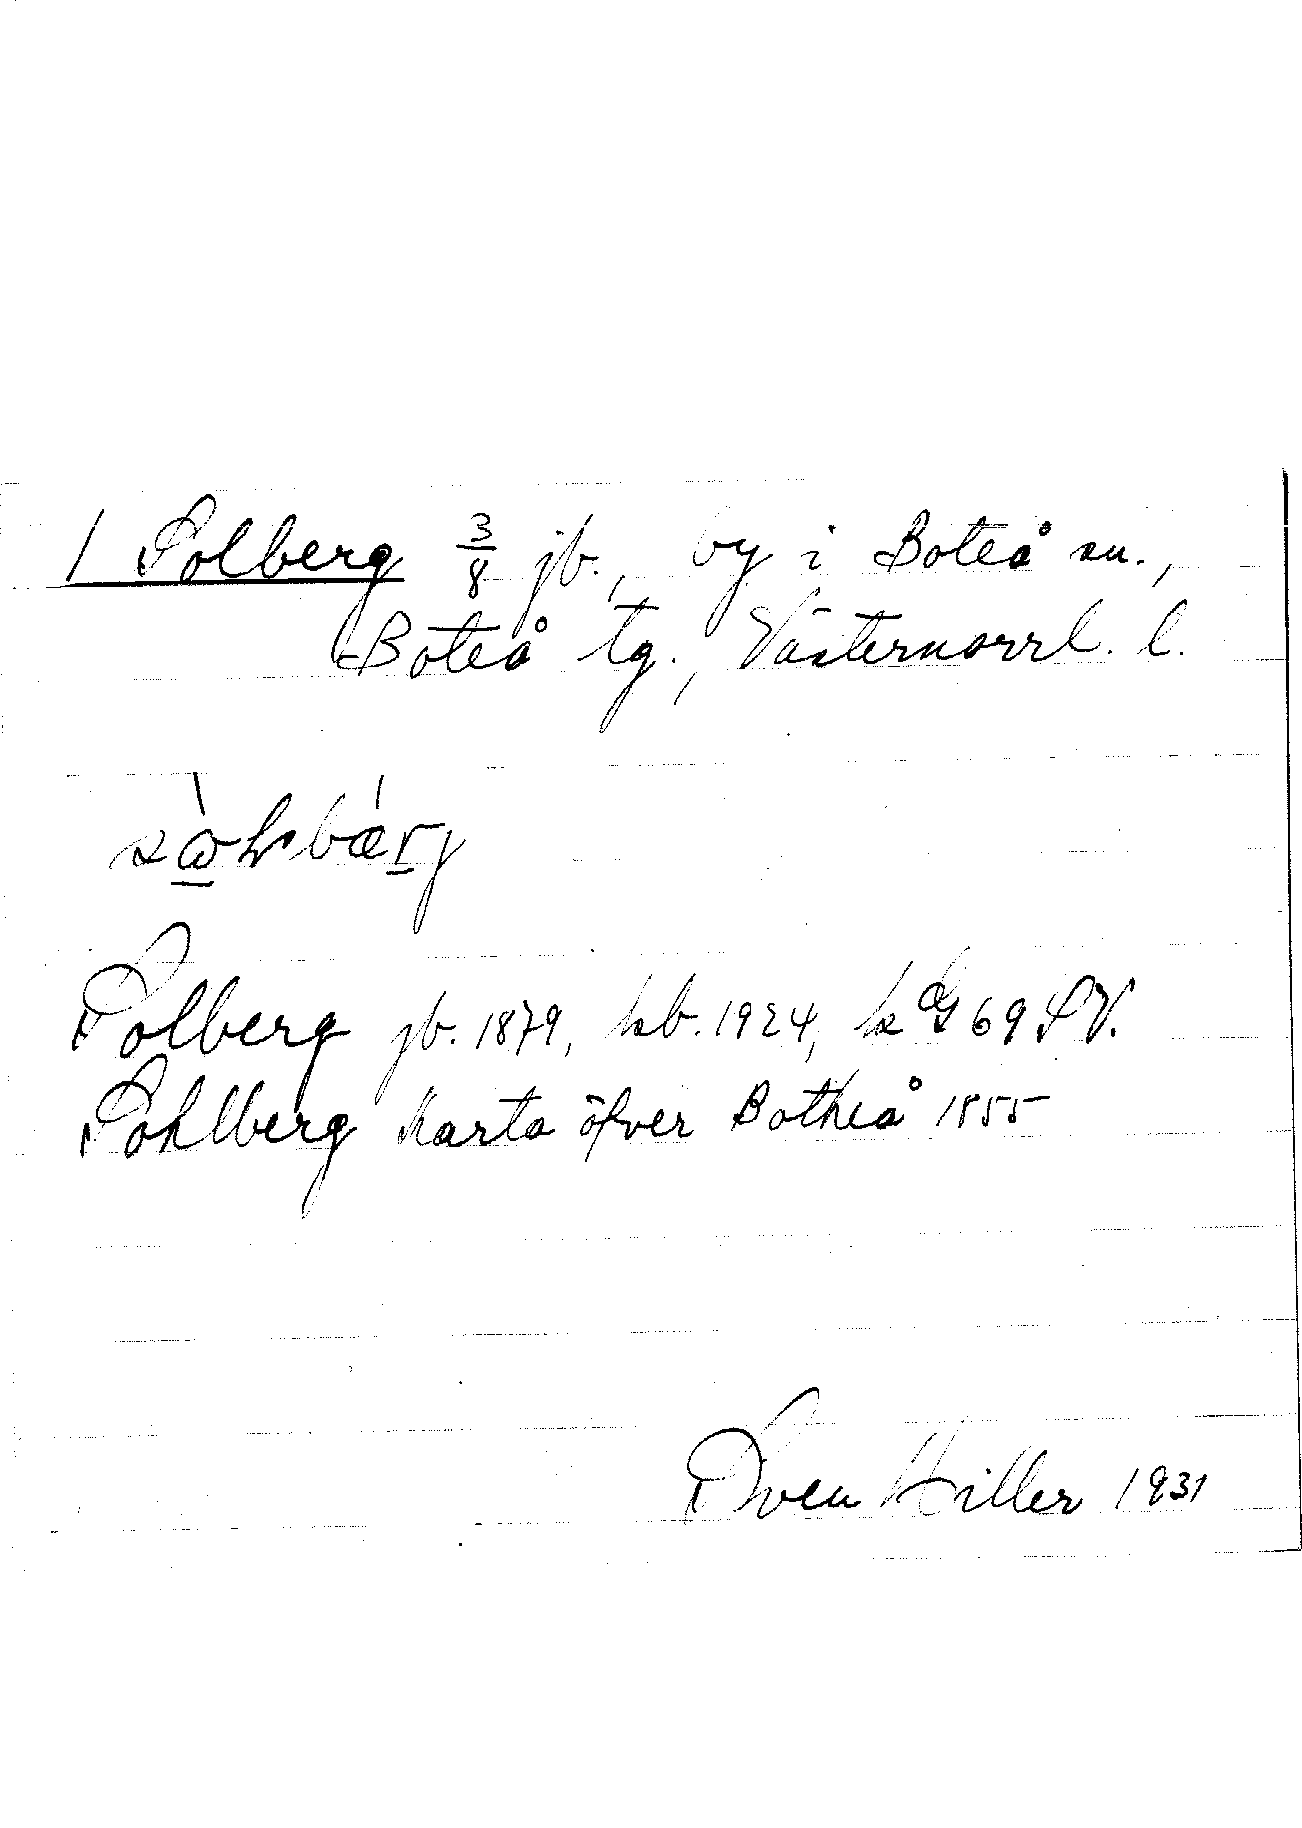 1 Solberg 3/8 jb., by i Boteå sn.,
Boteå tg., Västernorrl. l.
Solberg jb. 1879, kb. 1924, k GG 69 SV.
Sohlberg Karta öfver Botheå 1855
Sven Hiller 1931